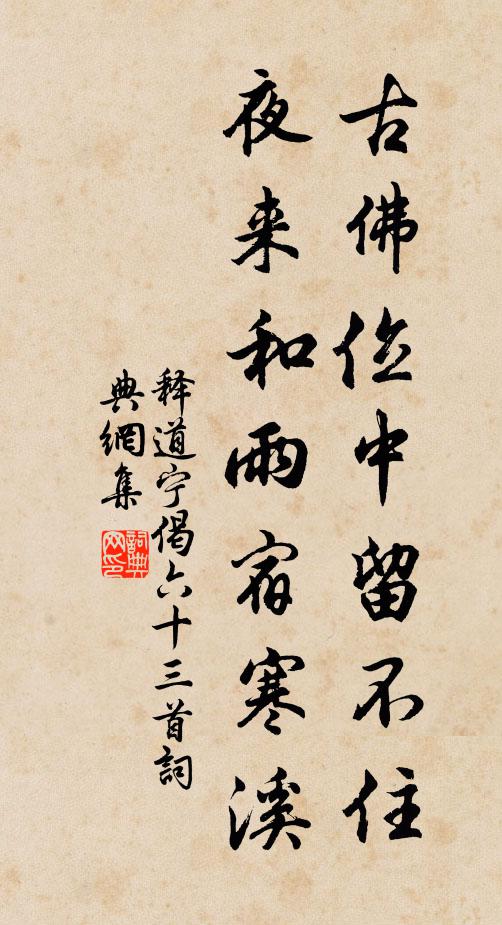 古佛位中留不住
夜来和雨宿寒溪
释道宁偈六十三首詞
典網集
詞典
网印